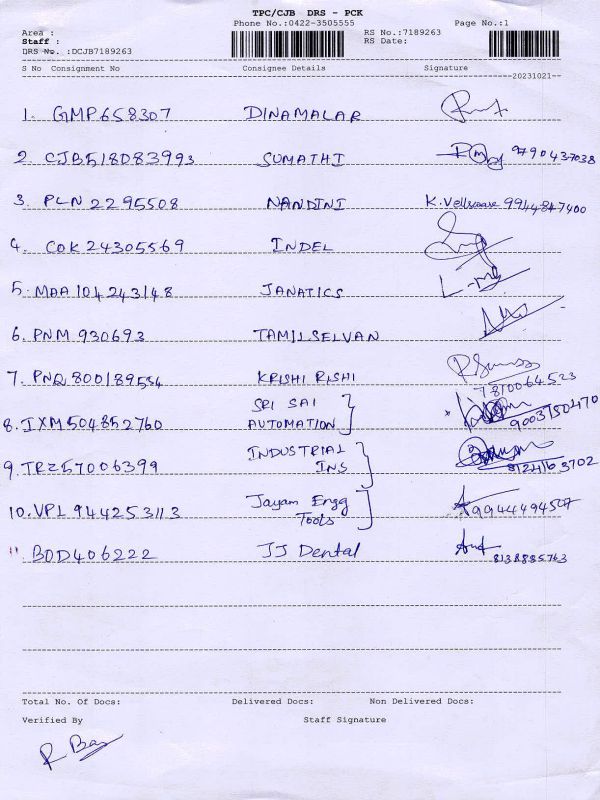 TPC/CJB DRS - PCK
Phone No.:0422-3505555 Page No.:1
Area : RS No.:7189263
Staff : RS Date:
DRS No. :DCJB7189263
S No Consignment No Consignee Details Signature
--20231021--
1. GMP658307 DINAMALAR
2. CJB518083993 SUMATHI 9790437038
3. PLN 2295508 NANDINI K. 9944847400
4. COK 24305569 INDEL
5. MAA 104243148 JANATICS
6. PNM 930693 TAMILSELVAN
7. PNQ 800189554 KRISHI RISHI
7810064523
8. IXM504852760 SRI SAI AUTOMATION 9003750470
9. TRZ57006399 INDUSTRIAL INS
10. VPI 944253113 Jayam Engg Tools
11 BOD406222 JJ Dental 8138835763
Total No. Of Docs: Delivered Docs: Non Delivered Docs:
Verified By Staff Signature